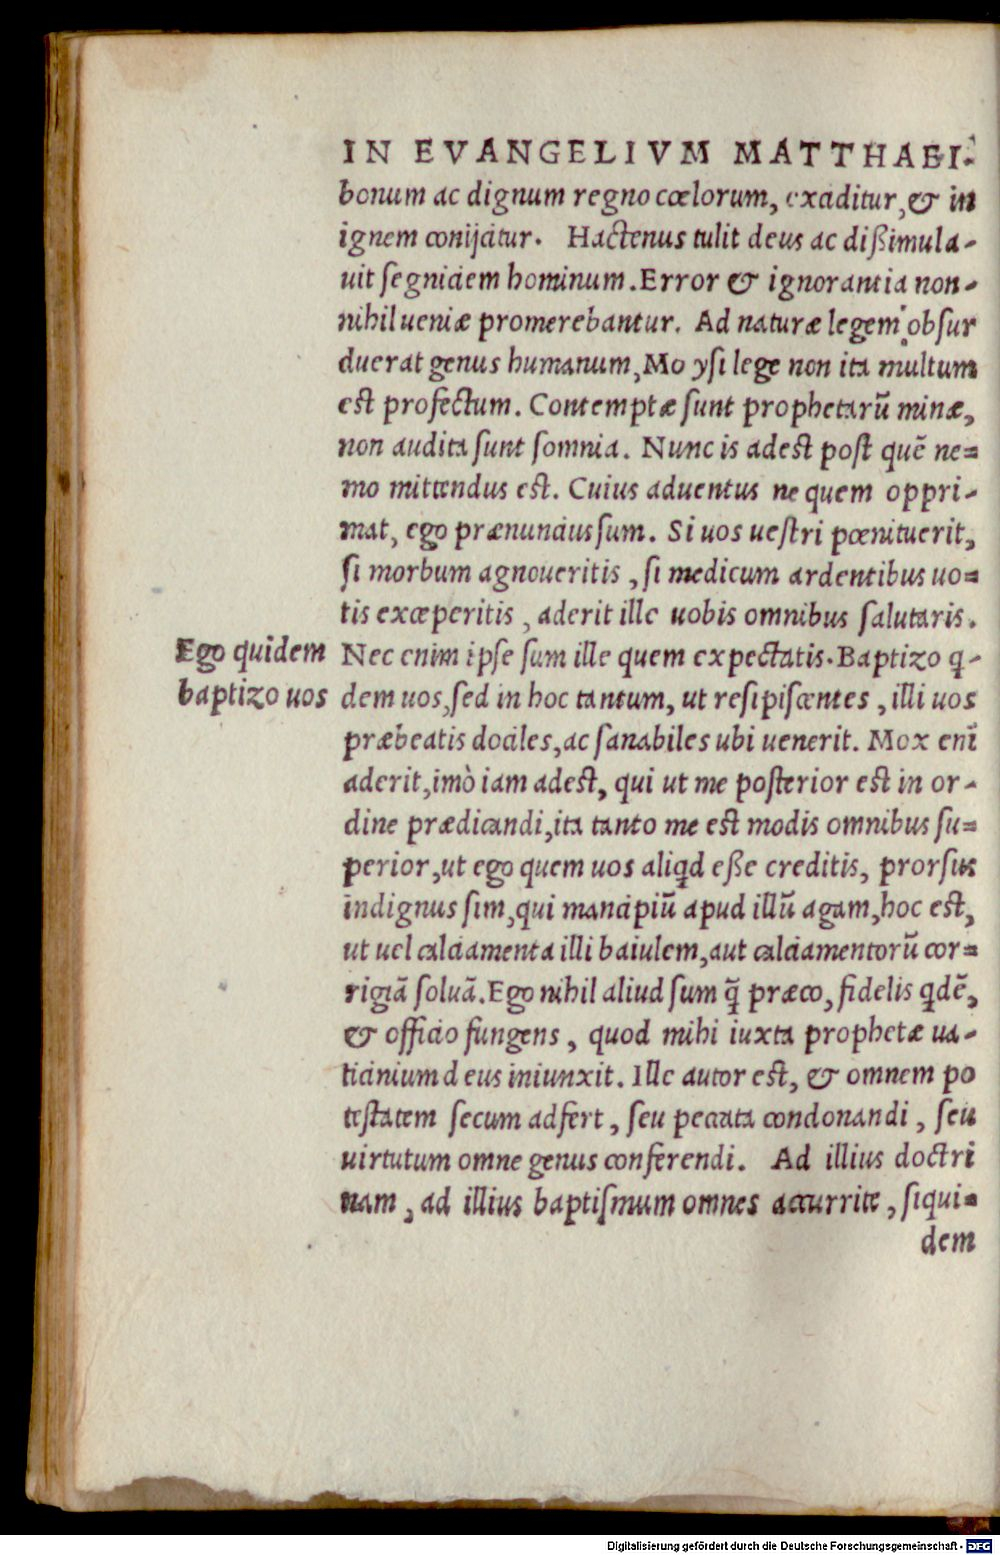 IN EVANGELIVM MATTHAEI.
bonum ac dignum regno cœlorum, exciditur, & in
ignem conijcitur. Hactenus tulit deus ac dißimula-
uit ſegniciem hominum. Error & ignorantia non-
nihil ueniæ promerebantur. Ad naturæ legem obſur
duerat genus humanum, Mo yſi lege non ita multum
est profectum. Contemptæ ſunt prophetarũ minæ,
non audita ſunt ſomnia. Nunc is adest post quẽ ne=
mo mittendus est. Cuius aduentus ne quem oppri-
mat, ego prænuncius ſum. Si uos ueſtri pœnituerit,
ſi morbum agnoueritis, ſi medicum ardentibus uo=
tis exceperitis, aderit ille uobis omnibus ſalutaris.
Ego quidem
baptizo uos
Nec enim ipſe ſum ille quem expectatis. Baptizo q-
dem uos, ſed in hoc tantum, ut reſipiſcentes, illi uos
præbeatis dociles, ac ſanabiles ubi uenerit. Mox enĩ
aderit, imò iam adest, qui ut me poſterior est in or-
dine prædicandi, ita tanto me est modis omnibus ſu=
perior, ut ego quem uos aliqd eße creditis, prorſus
indignus ſim, qui mancipiũ apud illũ agam, hoc est,
ut uel calciamenta illi baiulem, aut calciamentorũ cor=
rigiã ſoluã. Ego nihil aliud ſum q̃ præco, fidelis qdẽ,
& officio fungens, quod mihi iuxta prophetæ ua-
ticinium deus iniunxit. Ille autor est, & omnem po
teſtatem ſecum adfert, ſeu peccata condonandi, ſeu
uirtutum omne genus conferendi. Ad illius doctri
nam, ad illius baptiſmum omnes accurrite, ſiqui=
dem
Digitalisierung gefördert durch die Deutsche Forschungsgemeinschaft - DFG